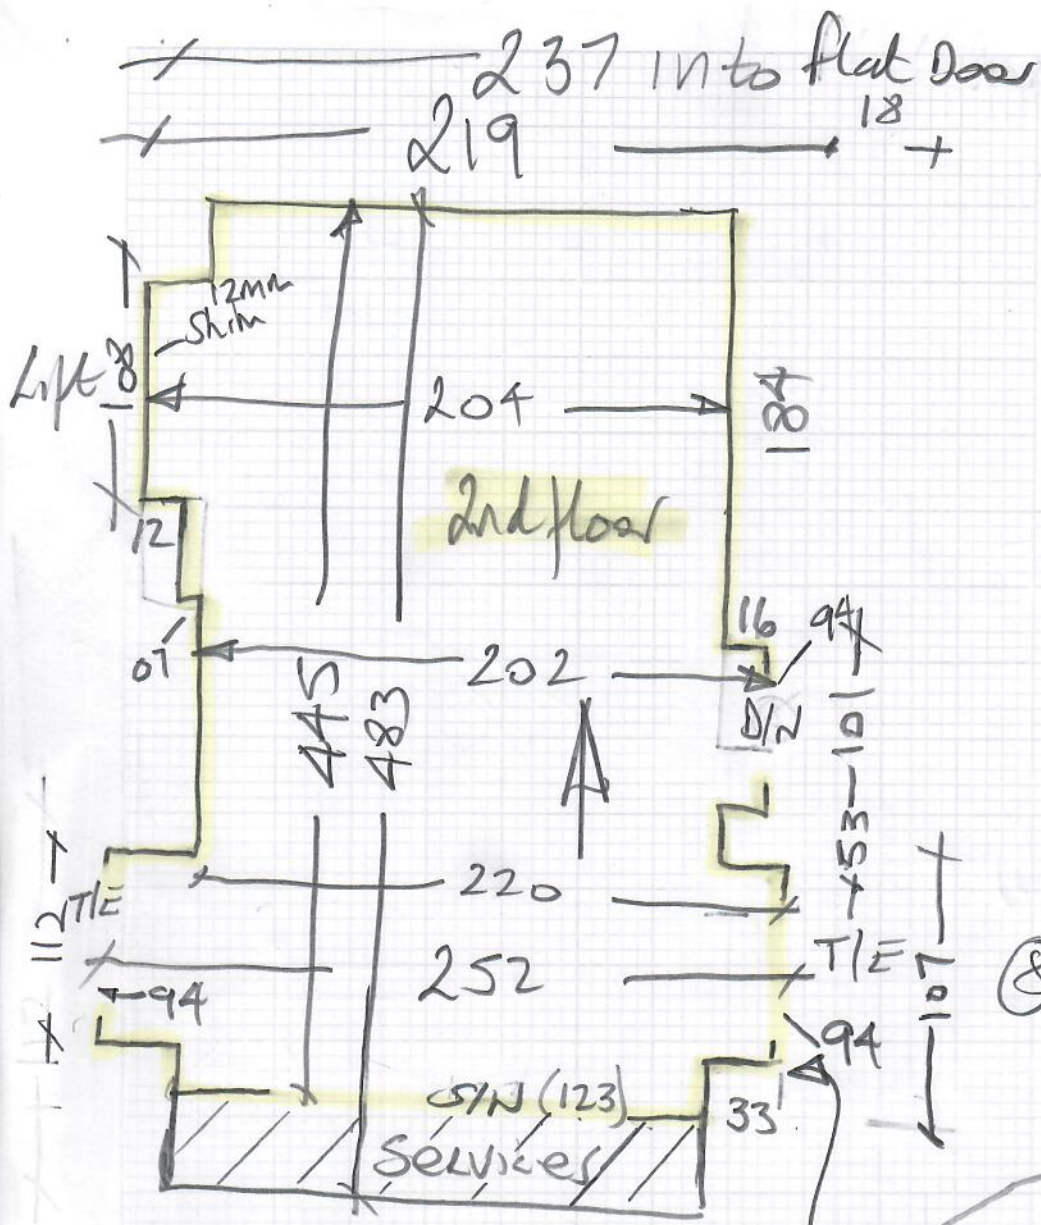 237 into flat Door
219
18
12mm
Shim
Lift
204
184
2nd floor
12
16
94
07
202
D/N
101
445
483
53
220
T/E
112
T/E
252
107
94
94
S/N (123)
33
Services